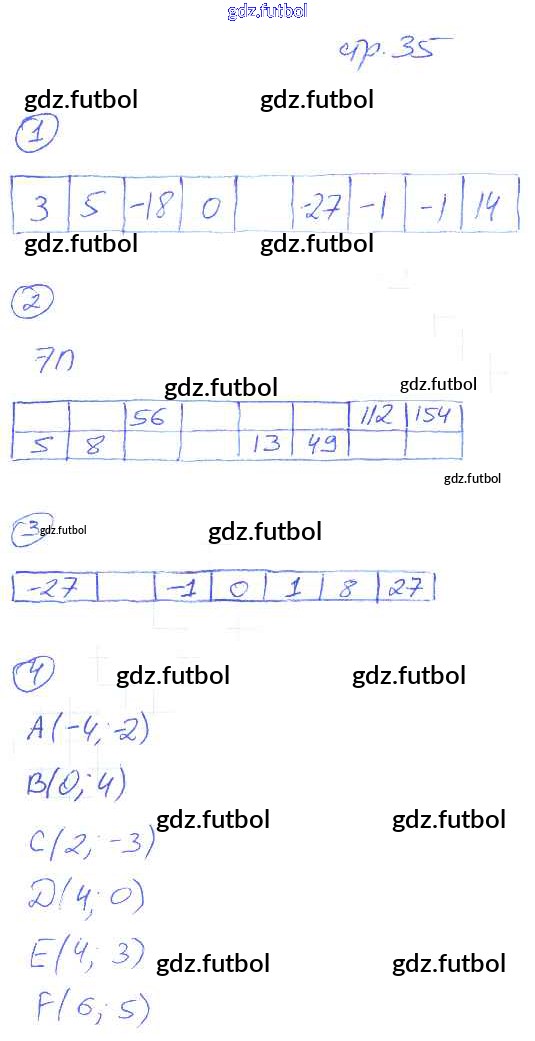 gdz.futbol
стр. 35
gdz.futbol gdz.futbol
1
3 5 -18 0 -27 -1 -1 14
gdz.futbol gdz.futbol
2
7п
gdz.futbol gdz.futbol
56 112 154
5 8 13 49
gdz.futbol
3 gdz.futbol gdz.futbol
-27 -1 0 1 8 27
4 gdz.futbol gdz.futbol
A(-4; -2)
B(0; 4)
gdz.futbol gdz.futbol
C(2; -3)
D(4; 0)
E(4; 3)
gdz.futbol gdz.futbol
F(6; 5)